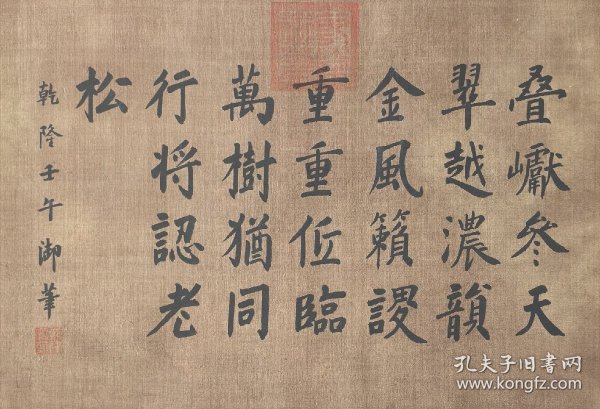 叠巘參天
翠越濃韻
金風籟謖
重重低臨
萬樹猶同
行将認老
松
乾隆壬午御筆
孔夫子旧书网
www.kongfz.com